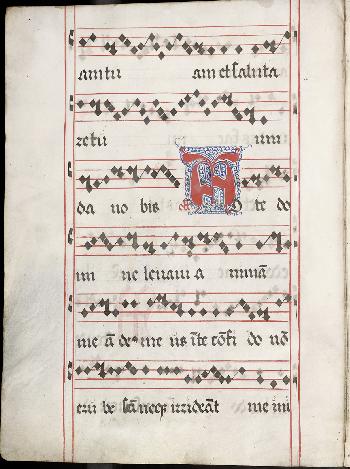 am tu am et saluta
re tu um
da no bis A D te do
mi ne leuaui a nimā
me ā de us me us ī te cōfi do nō
eru be scā neqȝ irrideāt me ini